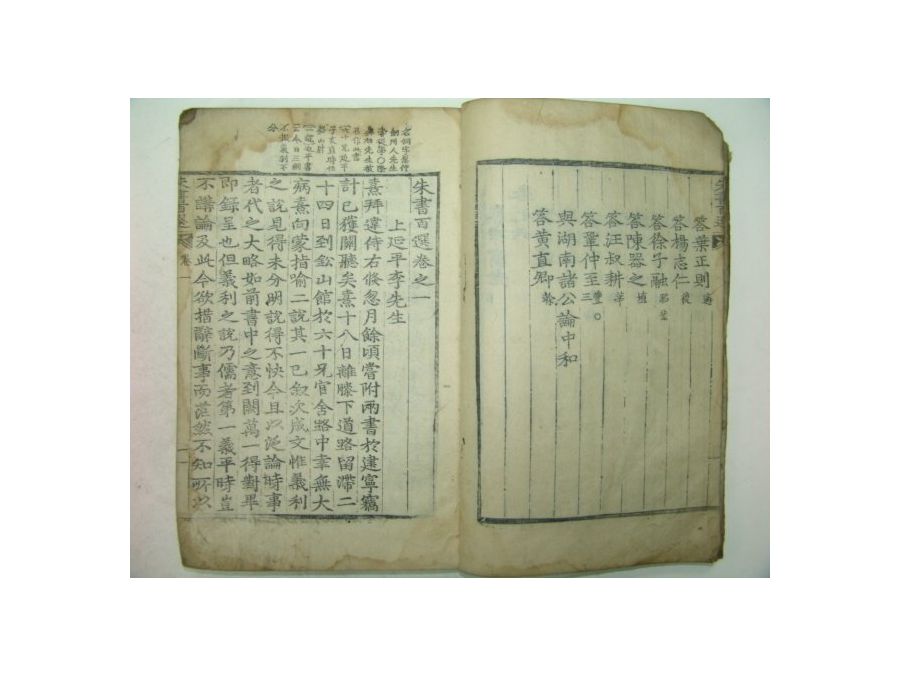 答葉正則適
答楊志仁復
答徐子融昭然
答陳器之埴
答汪叔耕莘
答鞏仲至豐○三
與湖南諸公論中和
答黃直卿榦
朱書百選卷之一
上延平李先生
熹拜違侍右倐忽月餘頃嘗附兩書於建寧竊
計已獲關聽矣熹十八日離膝下道路留滯二
十四日到鈆山館於六十兄官舍路中幸無大
病熹向蒙指喻二說其一已叙次成文惟義利
之說見得未分明說得不快今且以泛論時事
者代之大略如前書中之意到闕萬一得對畢
即錄呈也但義利之說乃儒者第一義平時豈
不講論及此今欲措辭斷事而茫然不知所以